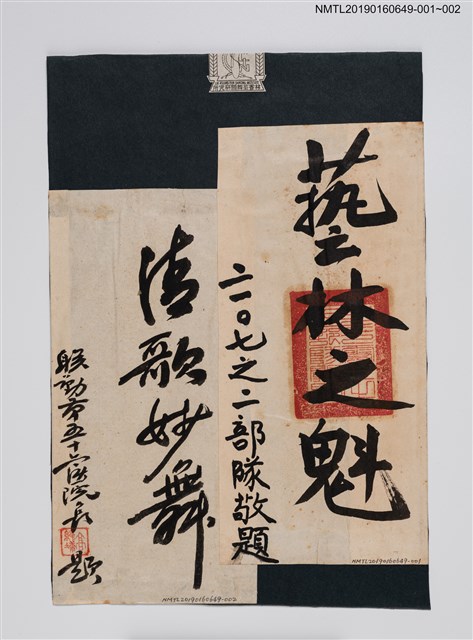 NMTL20190160649-001~002
藝林之魁
六一〇七之二部隊敬題
NMTL20190160649-001
清歌妙舞
聯勤第五十六醫院
題
NMTL20190160649-002